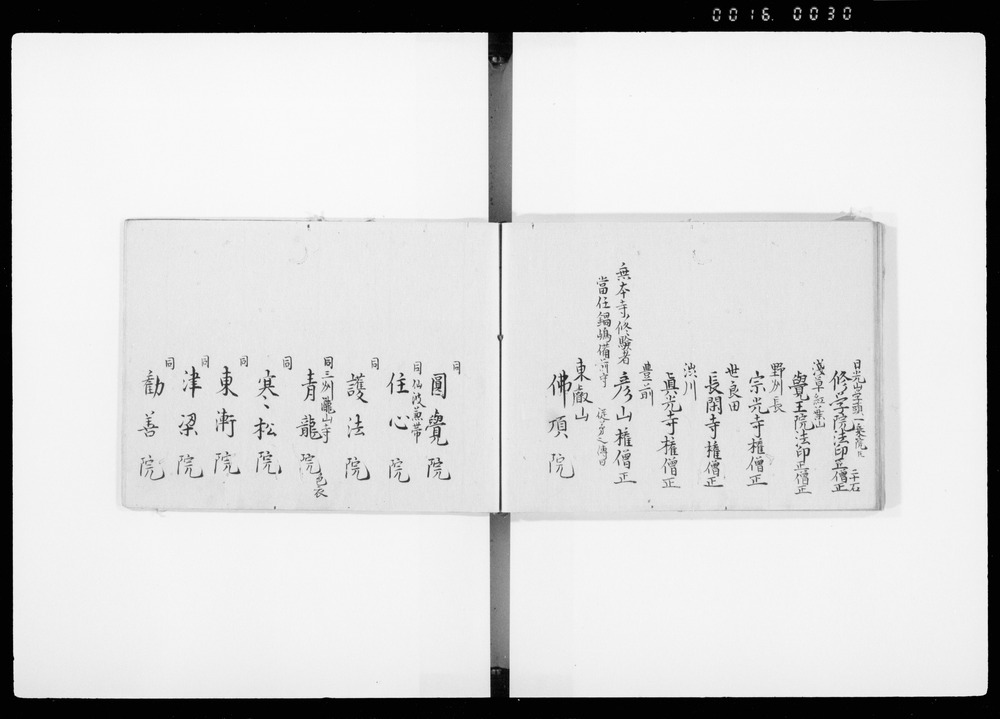 0016. 0030
日光山学頭
修学院法印正僧正
二千石
浅草紅葉山
覺王院法印正僧正
野州長
宗光寺権僧正
世良田
長閑寺権僧正
渋川
真光寺権僧正
豊前
彦山権僧正
無本寺修験者
當住鍋嶋備前守
東叡山
佛頂院
同
圓覺院
同仙波兼帯
住心院
同
護法院
同三州龍山寺
青龍院色衣
同
寒松院
同
東漸院
同
津梁院
同
勸善院